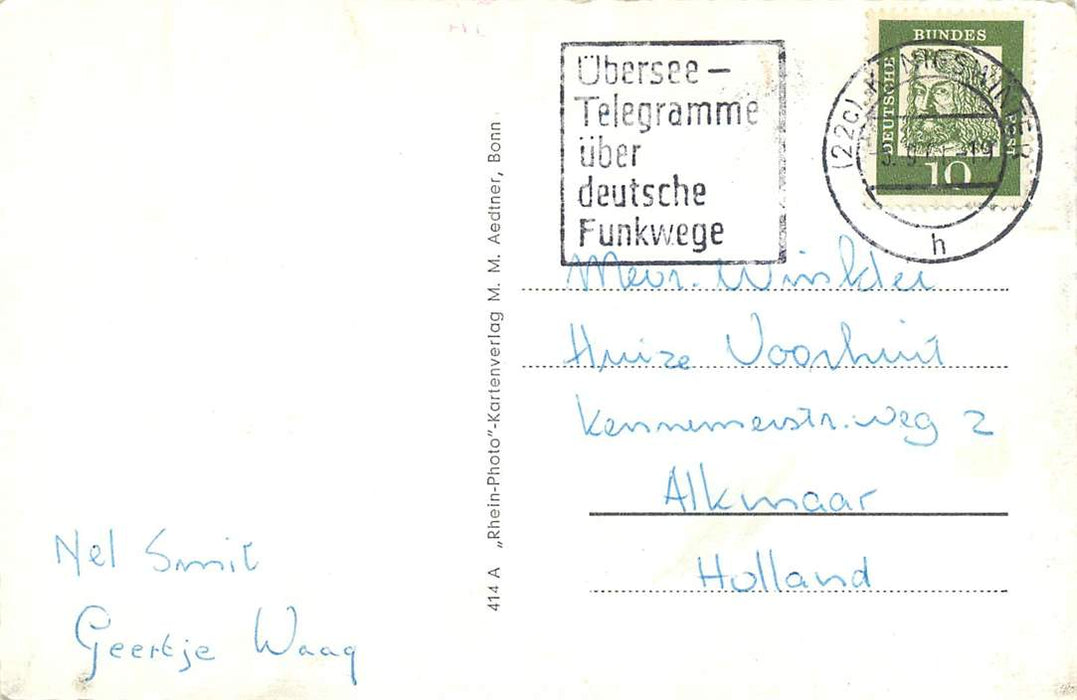 Übersee –
Telegramme
über
deutsche
Funkwege
BUNDES
DEUTSCHE
10
(22c) KÖNIGSWINTER
h
Mevr. Winkler
Huize Voorhuit
Kennemerstr. weg 2
Alkmaar
Holland
Nel Smit
Geertje Waag
414 A „Rhein-Photo"-Kartenverlag M. M. Aedtner, Bonn